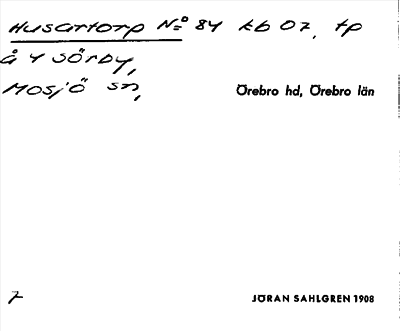 Husartorp No 84 kb 07, tp
å 4 Sörby,
Mosjö sn,
Örebro hd, Örebro län
7
JÖRAN SAHLGREN 1908